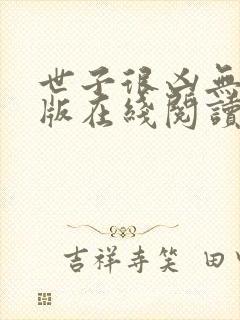 世子很凶無
版在綫閱讀
吉祥寺笑 田